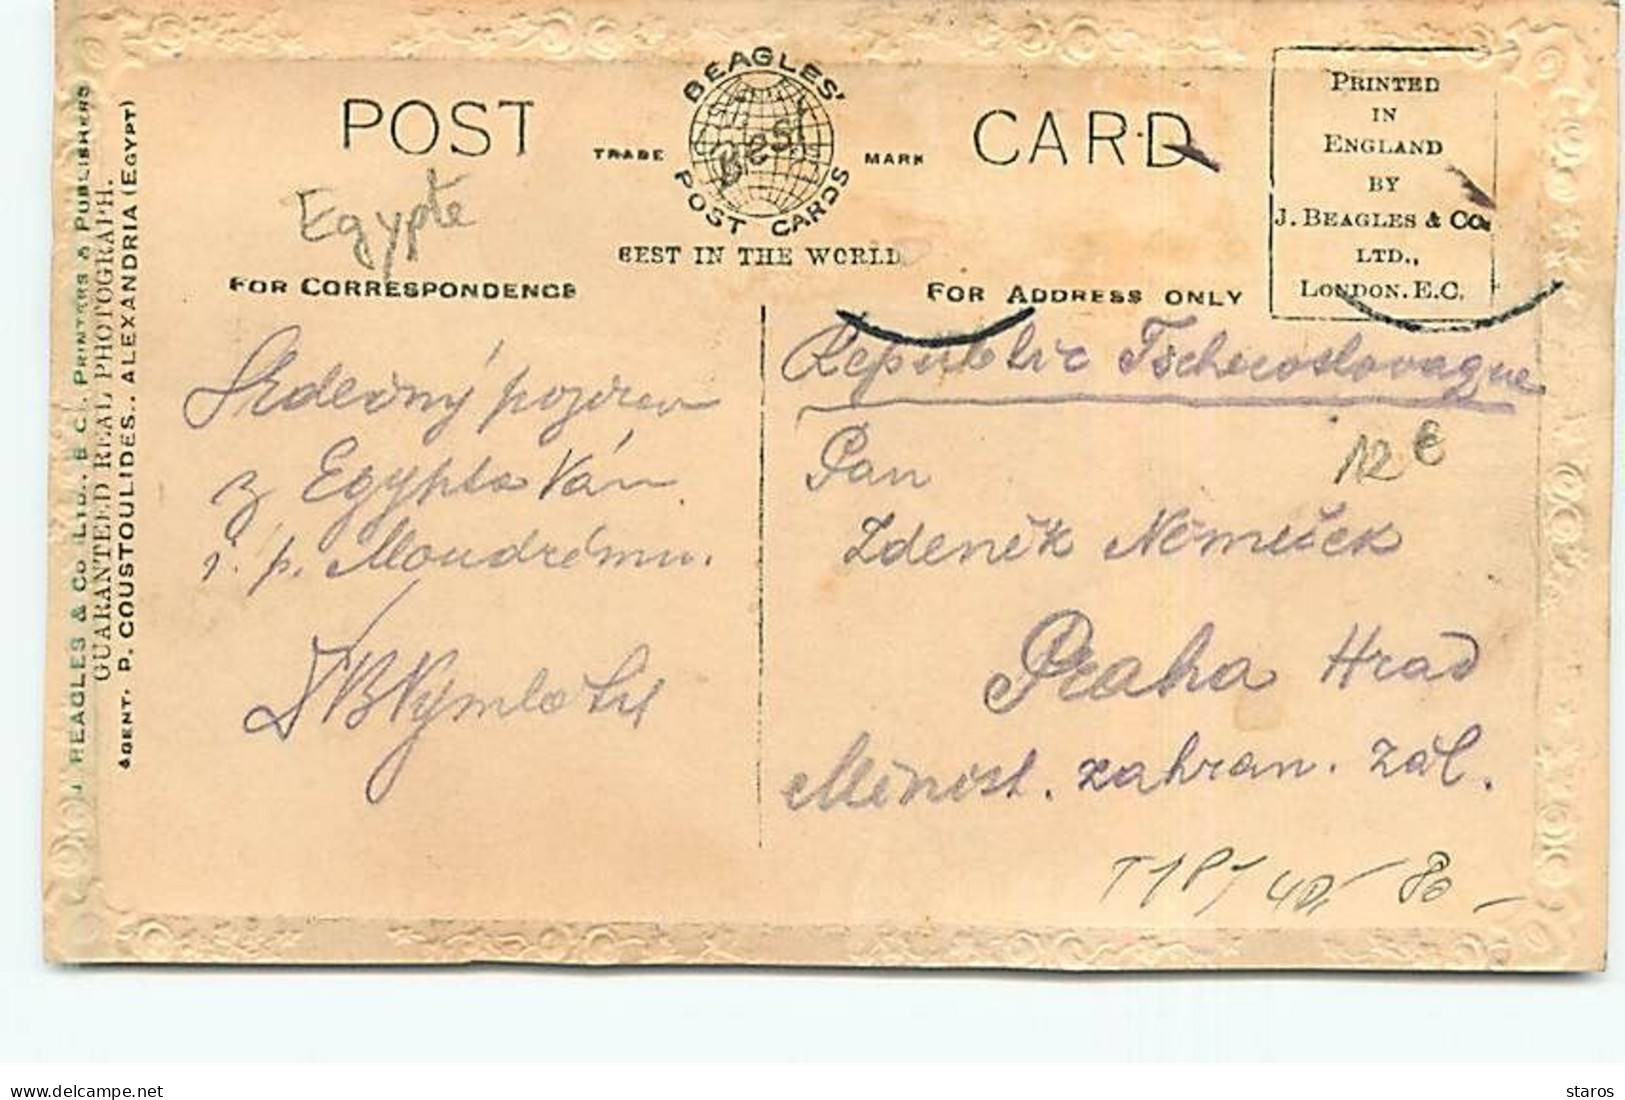 POST CARD
BEAGLES' POST CARDS
Best
TRADE MARK
BEST IN THE WORLD
PRINTED
IN
ENGLAND
BY
J. BEAGLES & Co.
LTD.,
LONDON. E.C.
Egypte
FOR CORRESPONDENCE
FOR ADDRESS ONLY
Srdečný pozdrav
z Egypta Vám
i. p. Moudrému.
Republic Tschecoslovaque
12 €
Pan
Zdeněk Němeček
Praha Hrad
Minist. zahran. zál.
80 -
J. BEAGLES & Co LTD., E.C., PRINTERS & PUBLISHERS
GUARANTEED REAL PHOTOGRAPH.
AGENT. P. COUSTOULIDES., ALEXANDRIA (EGYPT)
www.delcampe.net
staros